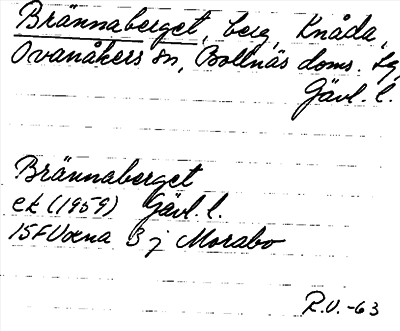 Brännaberget, berg, Knåda,
Ovanåkers sn, Bollnäs doms. tg,
Gävl. l.
Brännaberget
ek (1959) Gävl. l.
15F Voxna 3 j Morabo
R.V. -63